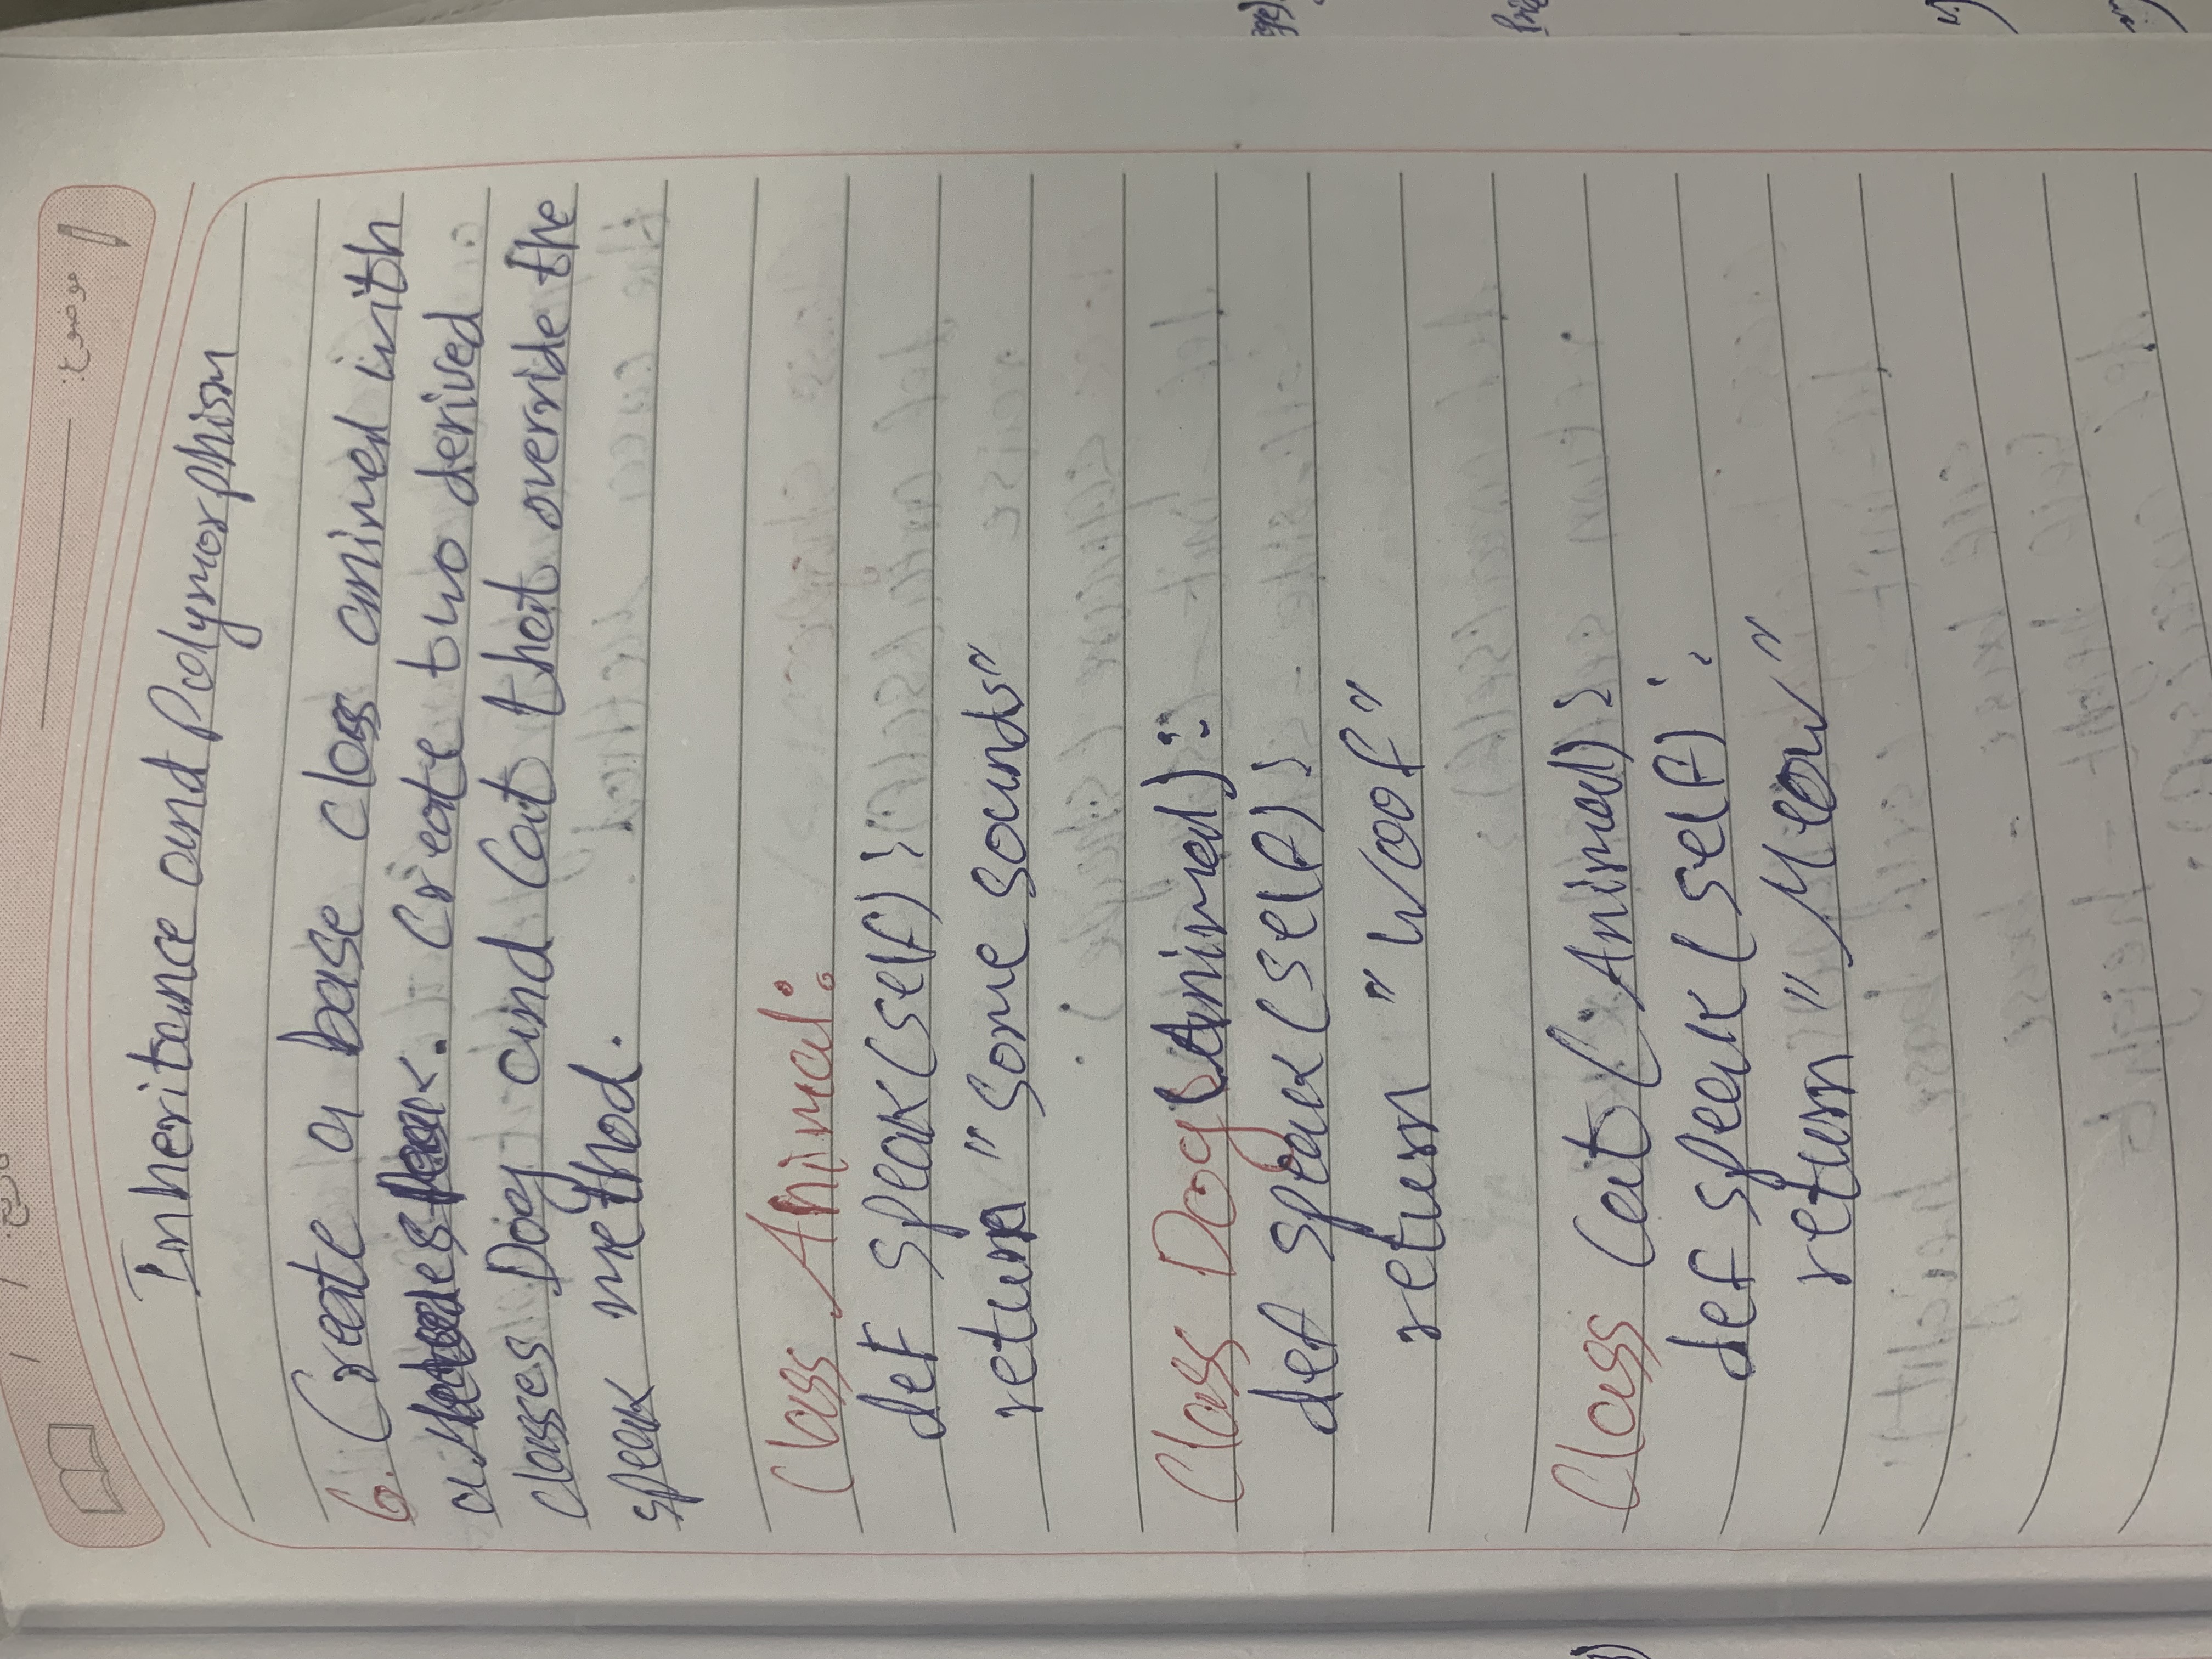 تاریخ: / /
موضوع:
Inheritance and Polymorphism
6. Create a base class animal with
a speak. Create two derived
classes Dog and Cat that override the
speak method.
Class Animal:
def speak(self):
return "Some sounds"
Class Dog(Animal):
def speak(self):
return "Woof"
Class Cat(Animal):
def speak(self):
return "Meow"